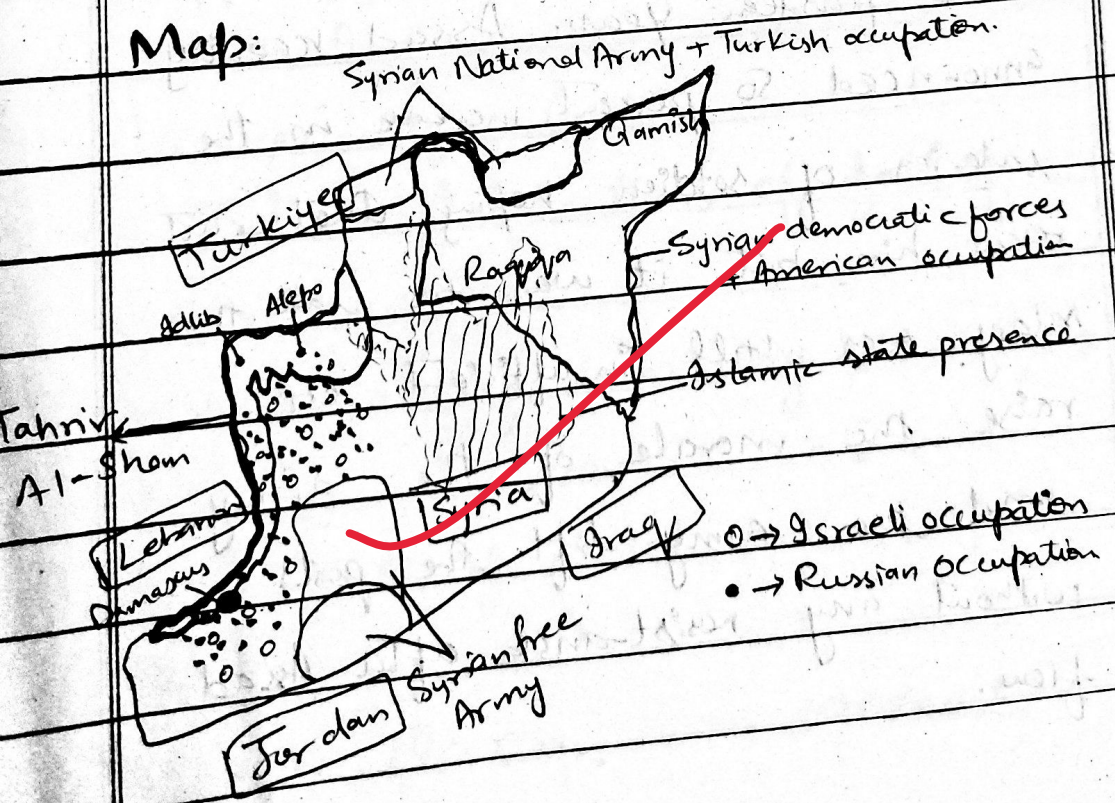 Map:
Syrian National Army + Turkish occupation.
Qamish
Turkiye
Syrian democratic forces
+ American occupation
Raqqa
Alepo
Idlib
Islamic state presence
Tahrir
Al-Sham
Syria
Lebanon
Iraq
O → Israeli occupation
• → Russian Occupation
Damascus
Syrian free
Army
Jordan